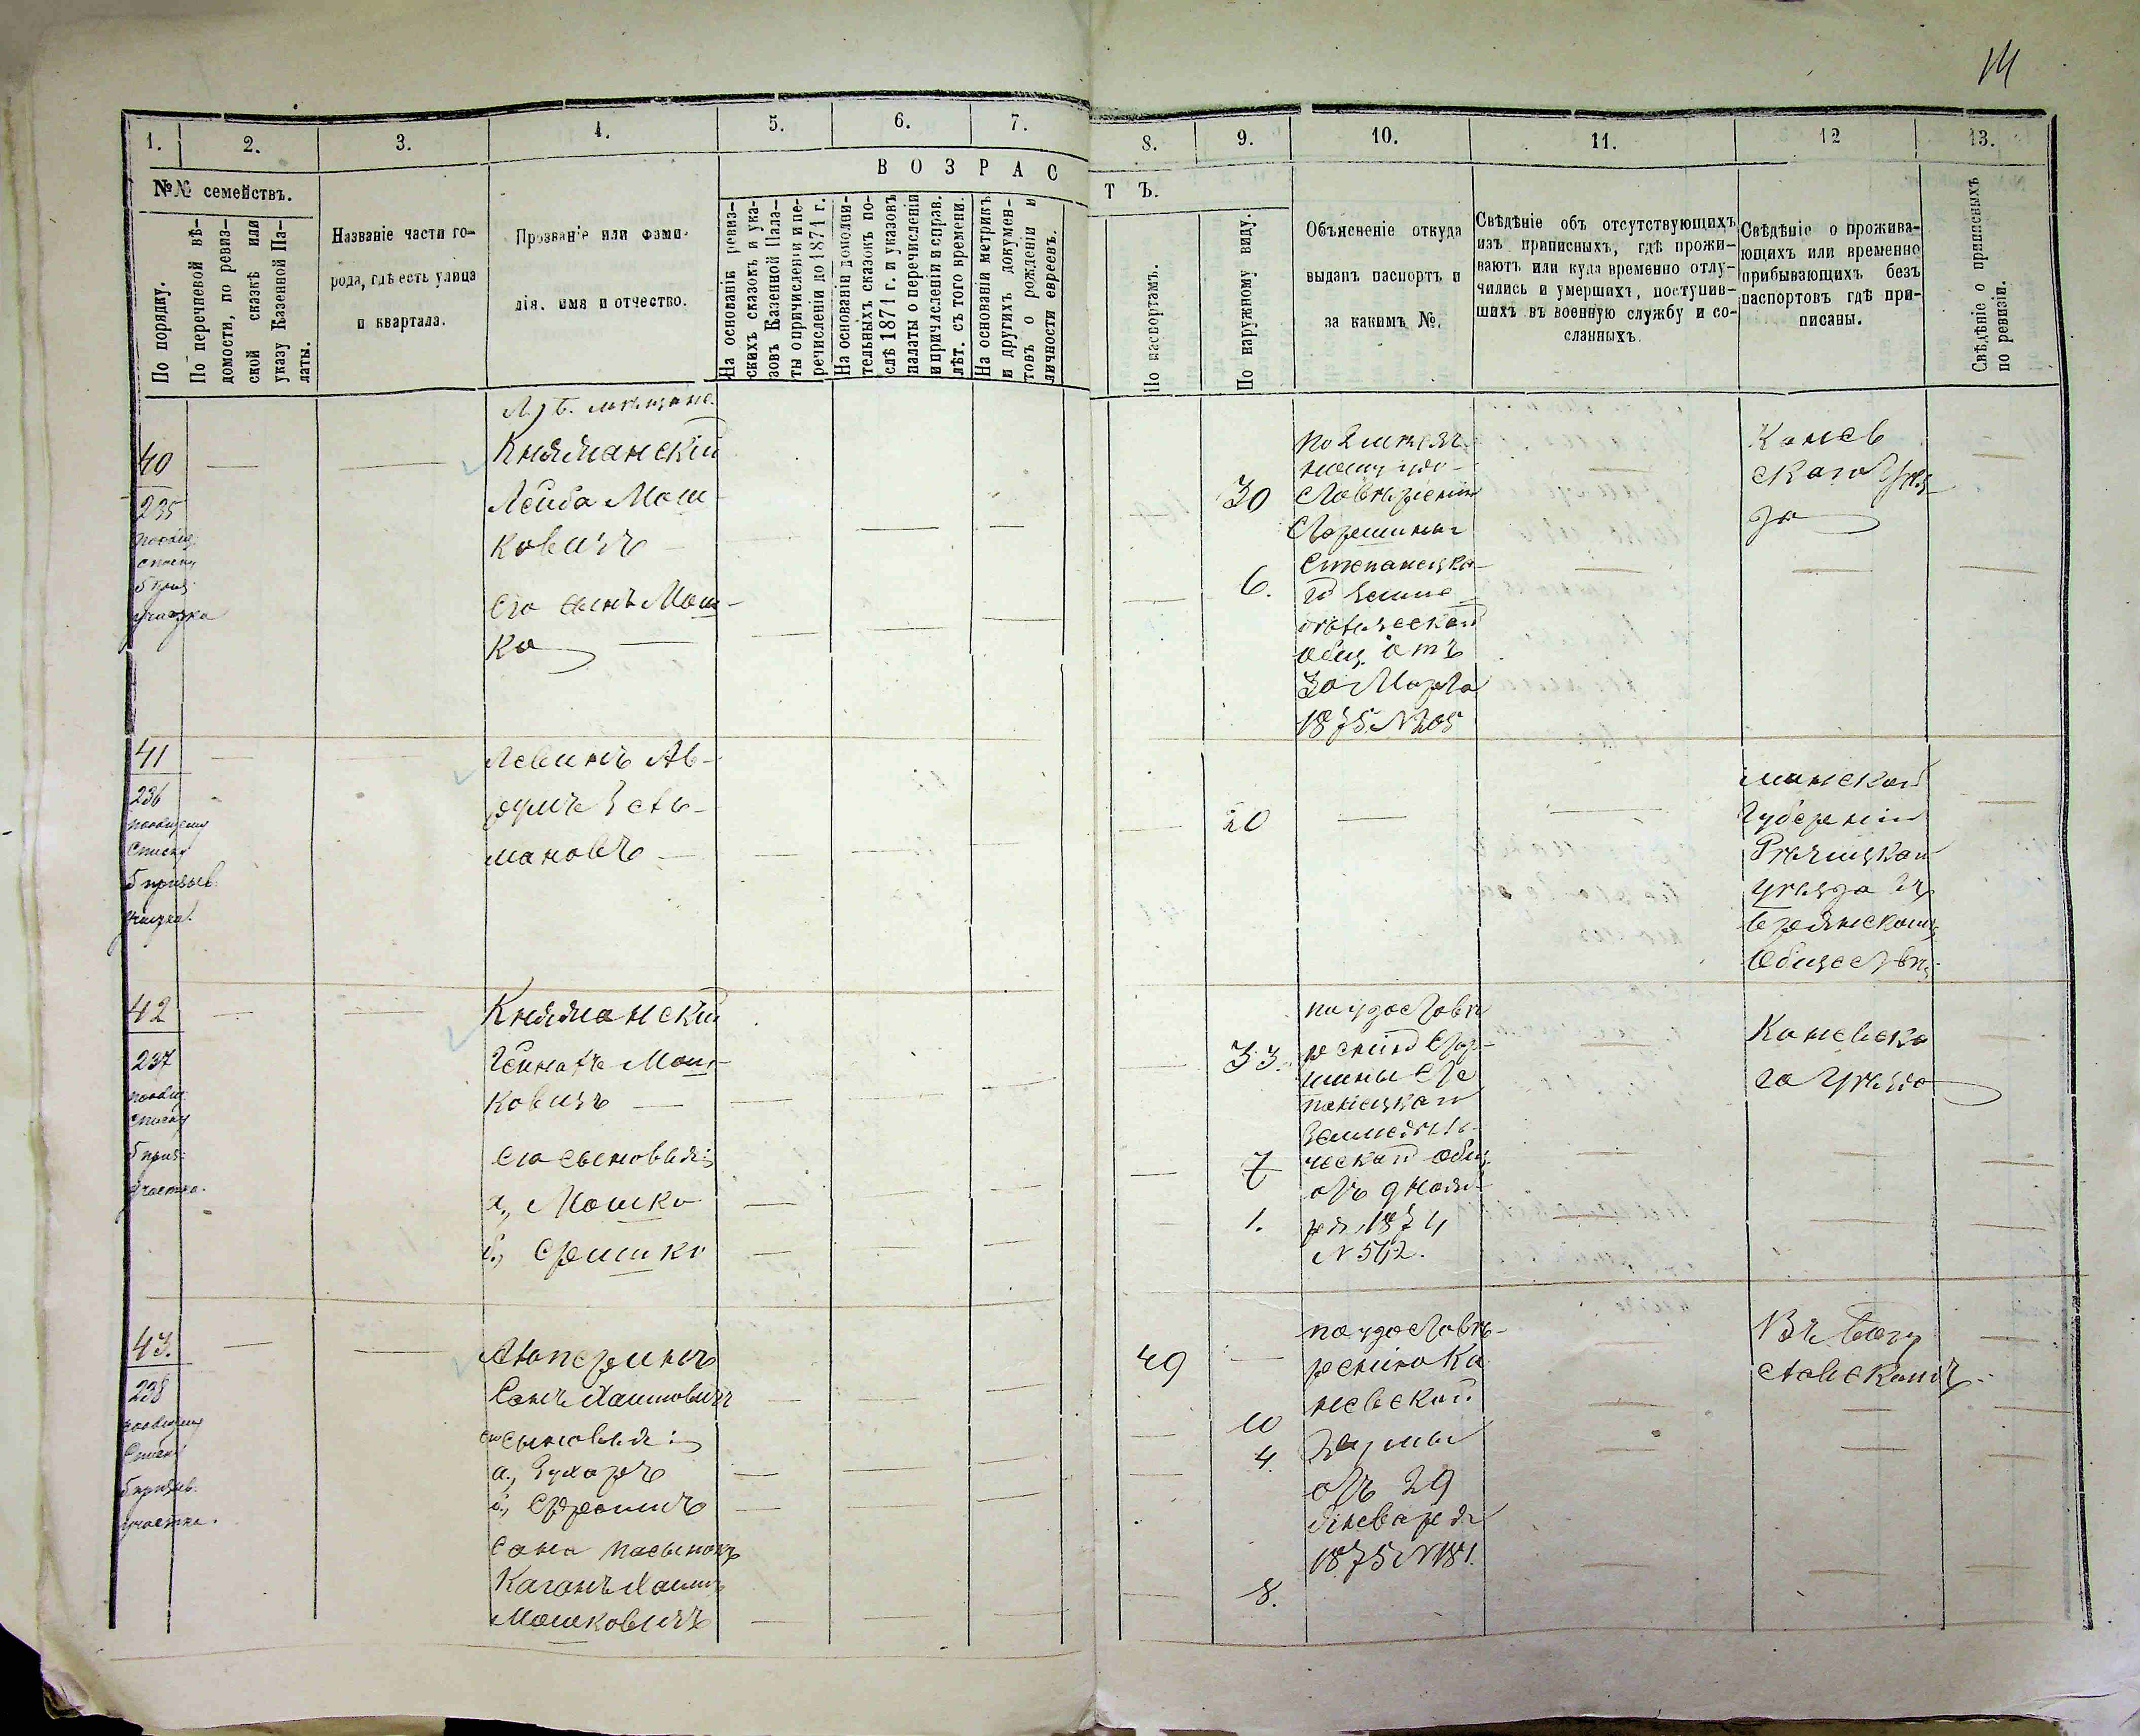 14
1.
2.
3.
4.
5.
6.
7.
8.
9.
10.
11.
12
13.
№№ семействъ.
По порядку.
По перечневой вѣ-
домости, по ревиз-
ской сказкѣ или
указу Казенной Па-
латы.
Названіе части го-
рода, гдѣ есть улица
и квартала.
Прозваніе или фами-
лія, имя и отчество.
ВОЗРАС
ТЪ.
На основаніи ревиз-
скихъ сказокъ и ука-
зовъ Казенной Пала-
ты о причисленіи и пе-
речисленіи до 1871 г.
На основаніи дополни-
тельныхъ сказокъ по-
слѣ 1871 г. и указовъ
палаты о перечисленіи
и причисленіи и справ.
лѣт. съ того времени.
На основаніи метрикъ
и другихъ докумен-
товъ о рожденіи и
личности евреевъ.
По паспортамъ.
По наружному виду.
Объясненіе откуда
выданъ паспортъ и
за какимъ №.
Свѣдѣніе объ отсутствующихъ
изъ приписныхъ, гдѣ прожи-
ваютъ или куда временно отлу-
чились и умершихъ, поступив-
шихъ въ военную службу и со-
сланныхъ.
Свѣдѣніе о прожива-
ющихъ или временно
прибывающихъ безъ
паспортовъ гдѣ при-
писаны.
Свѣдѣніе о приписныхъ
по ревизіи.
40
235
пообщ.
списку
5 приз.
участка
Княжанскій
Лейба Мош
ковичъ
Его сынъ Мош-
ко
30
6.
Старшины
Степанецко-
отъ
30 Марта
1875 № 205
Канев
скаго Уѣз
да
41
236
пообщему
Списку
5 призыв.
участка.
Левинъ Ав-
румъ
мановъ
20
Минской
Губерніи
Рѣчицкаго
Уѣзда
Обществу
42
237
пообщ.
списку
5 приз.
участка.
Княжанскій
Мош-
ковичъ
Его сыновья:
а, Мошко
б, Срешко
33.
7
1.
по удостовѣ
ренію Стар-
шины Сте
панецкой
Земледѣль-
ческой общ.
отъ 9 Нояб-
ря, 1874
№ 562.
Каневска
го Уѣзда
43.
238
пообщему
Списку
5 призыв.
участка.
Хаимовичъ
его сыновья:
а, Зухаръ
б, Ефроимъ
пасынокъ
Каганъ Хаимъ
Мошковичъ
49
10
4.
8.
по удостовѣ-
ренію Ка
невской
Думы
отъ 29
Января
1875 № 181.
Въ Богу
славскому.